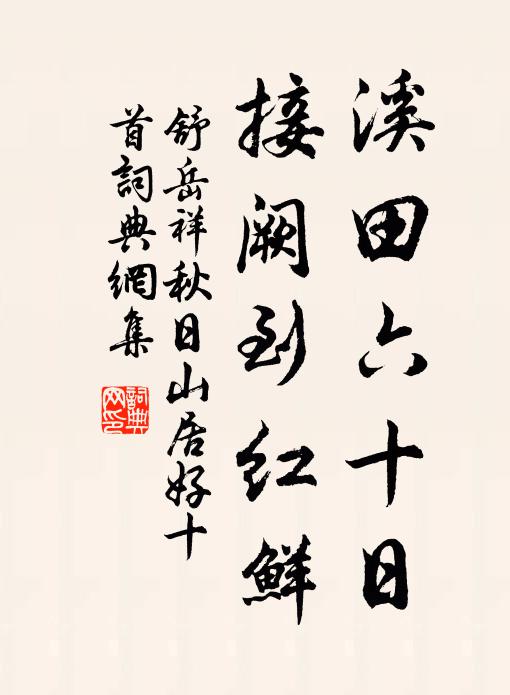 溪田六十日
接阙到红鲜
舒岳祥秋日山居好十
首詞典網集
詞典
网印